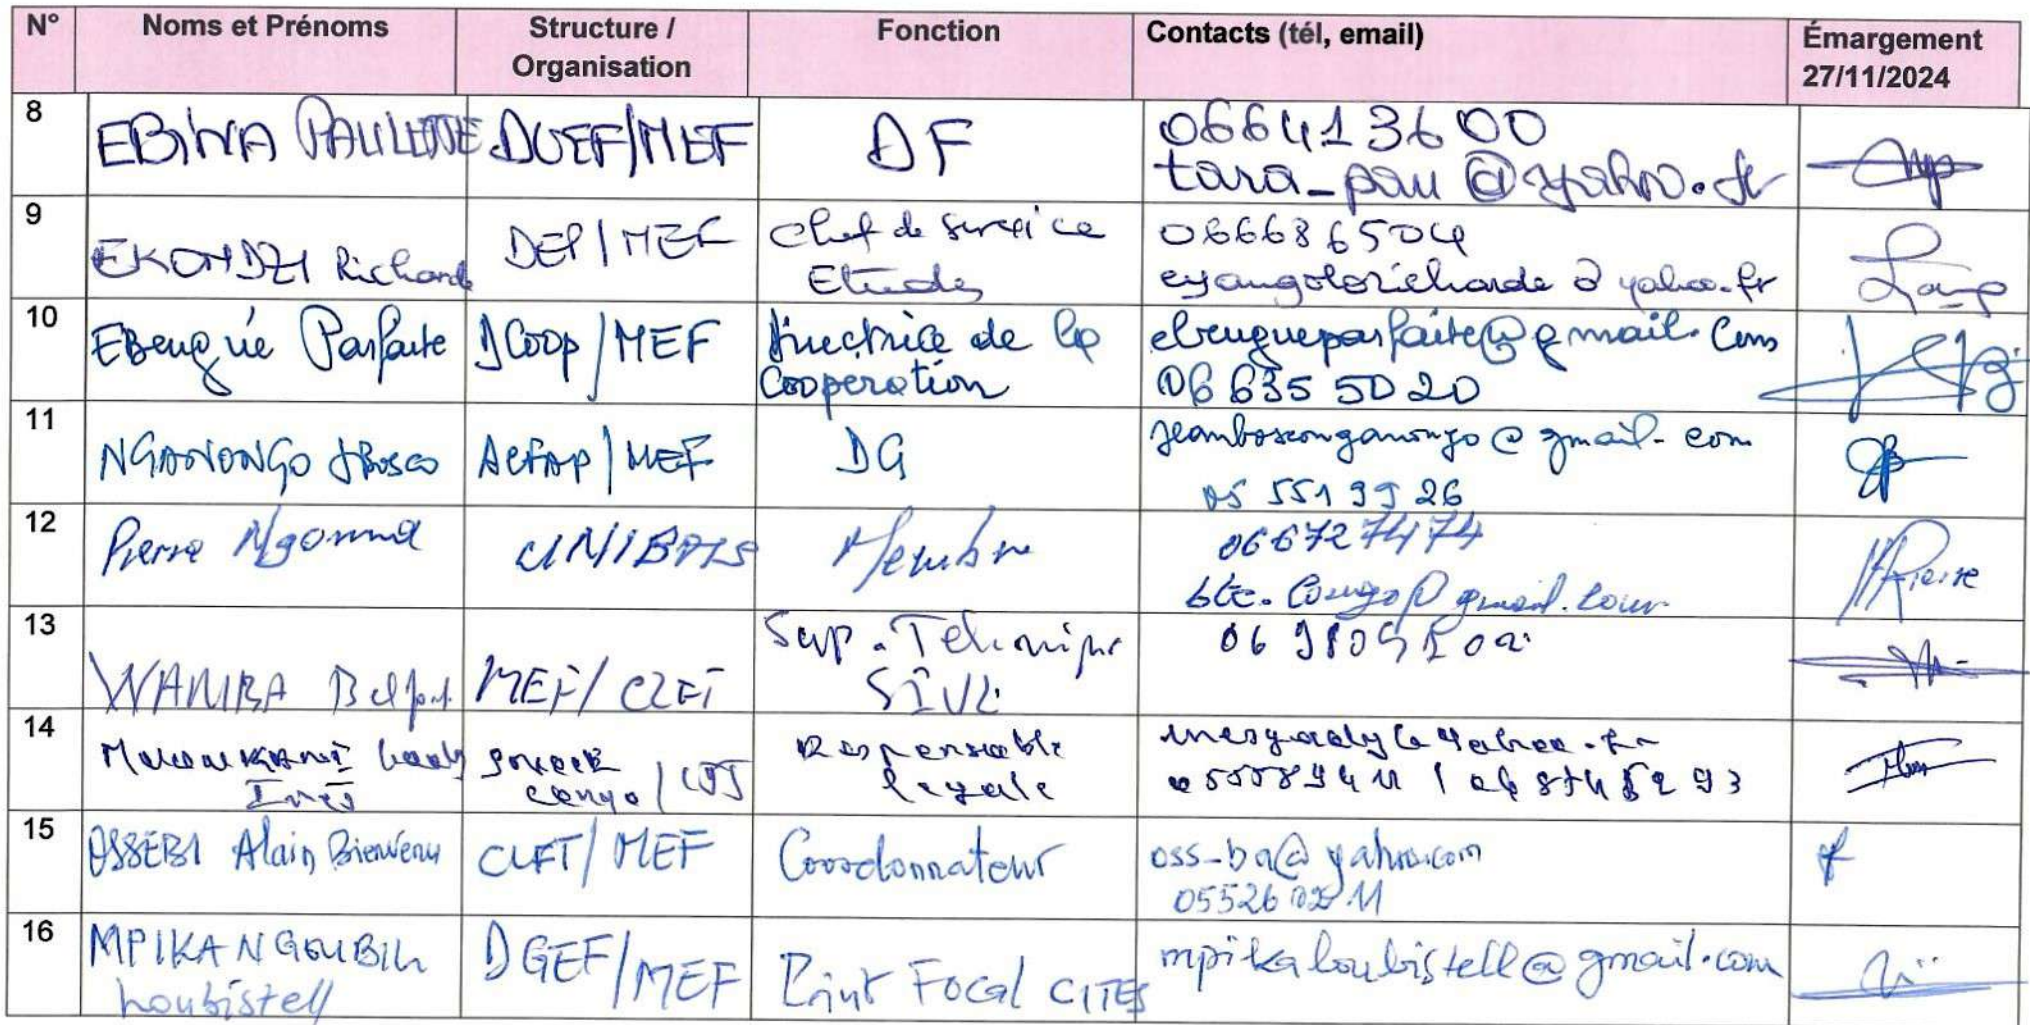 N° Noms et Prénoms Structure / Organisation Fonction Contacts (tél, email) Émargement 27/11/2024
8 EBINA PAULETTE DGEF/MEF DF 066413600
tara_pau@yahoo.fr
9 EKONDZI Richard DEP/MEF Chef de service Etudes 066686504
eyangoloricharde@yahoo.fr
10 EBengué Parfaite DCoop/MEF Directrice de la Cooperation ebengueparfaite@gmail.com
06 635 50 20
11 NGANONGO JBosco ACFAP/MEF DG jeanbosconganongo@gmail.com
05 551 99 26
12 Pierre Ngouma UNIBOIS Membre 066727474
btc.congo@gmail.com
13 WAMBA Belfort MEF/CLFT Sup. Technique
SIVL
14 Inès Congo Responsable légale
15 OSSEBI Alain Bienvenu CLFT/MEF Coordonnateur oss-ba@yahoo.com
16 MPIKA NGOUBILI Loubistell DGEF/MEF Point Focal CITES mpikaloubistell@gmail.com